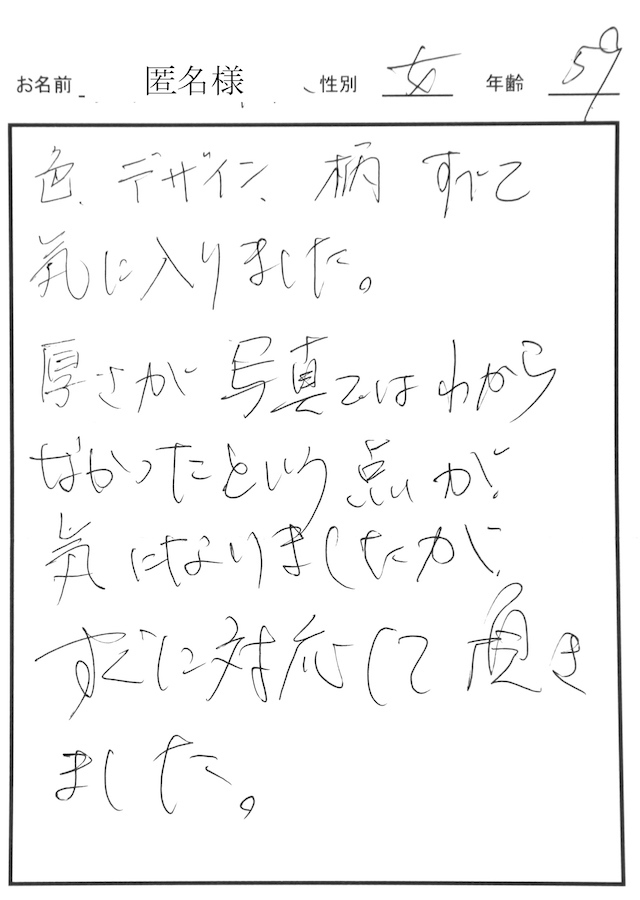 お名前 匿名様 性別 女 年齢 59
色、デザイン、柄 すべて
気に入りました。
厚さが写真ではわから
なかったという点が
気になりましたが、
すぐに対応して頂き
ました。